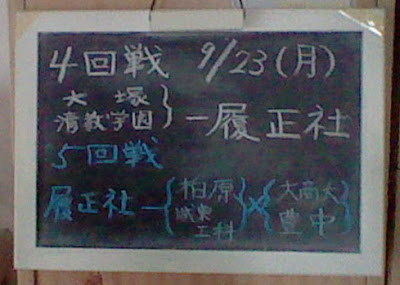 4回戦 9/23(月)
大塚
清教学园
ー履正社
5回戦
履正社ー
柏原
城東
工科
×
大商大
豊中